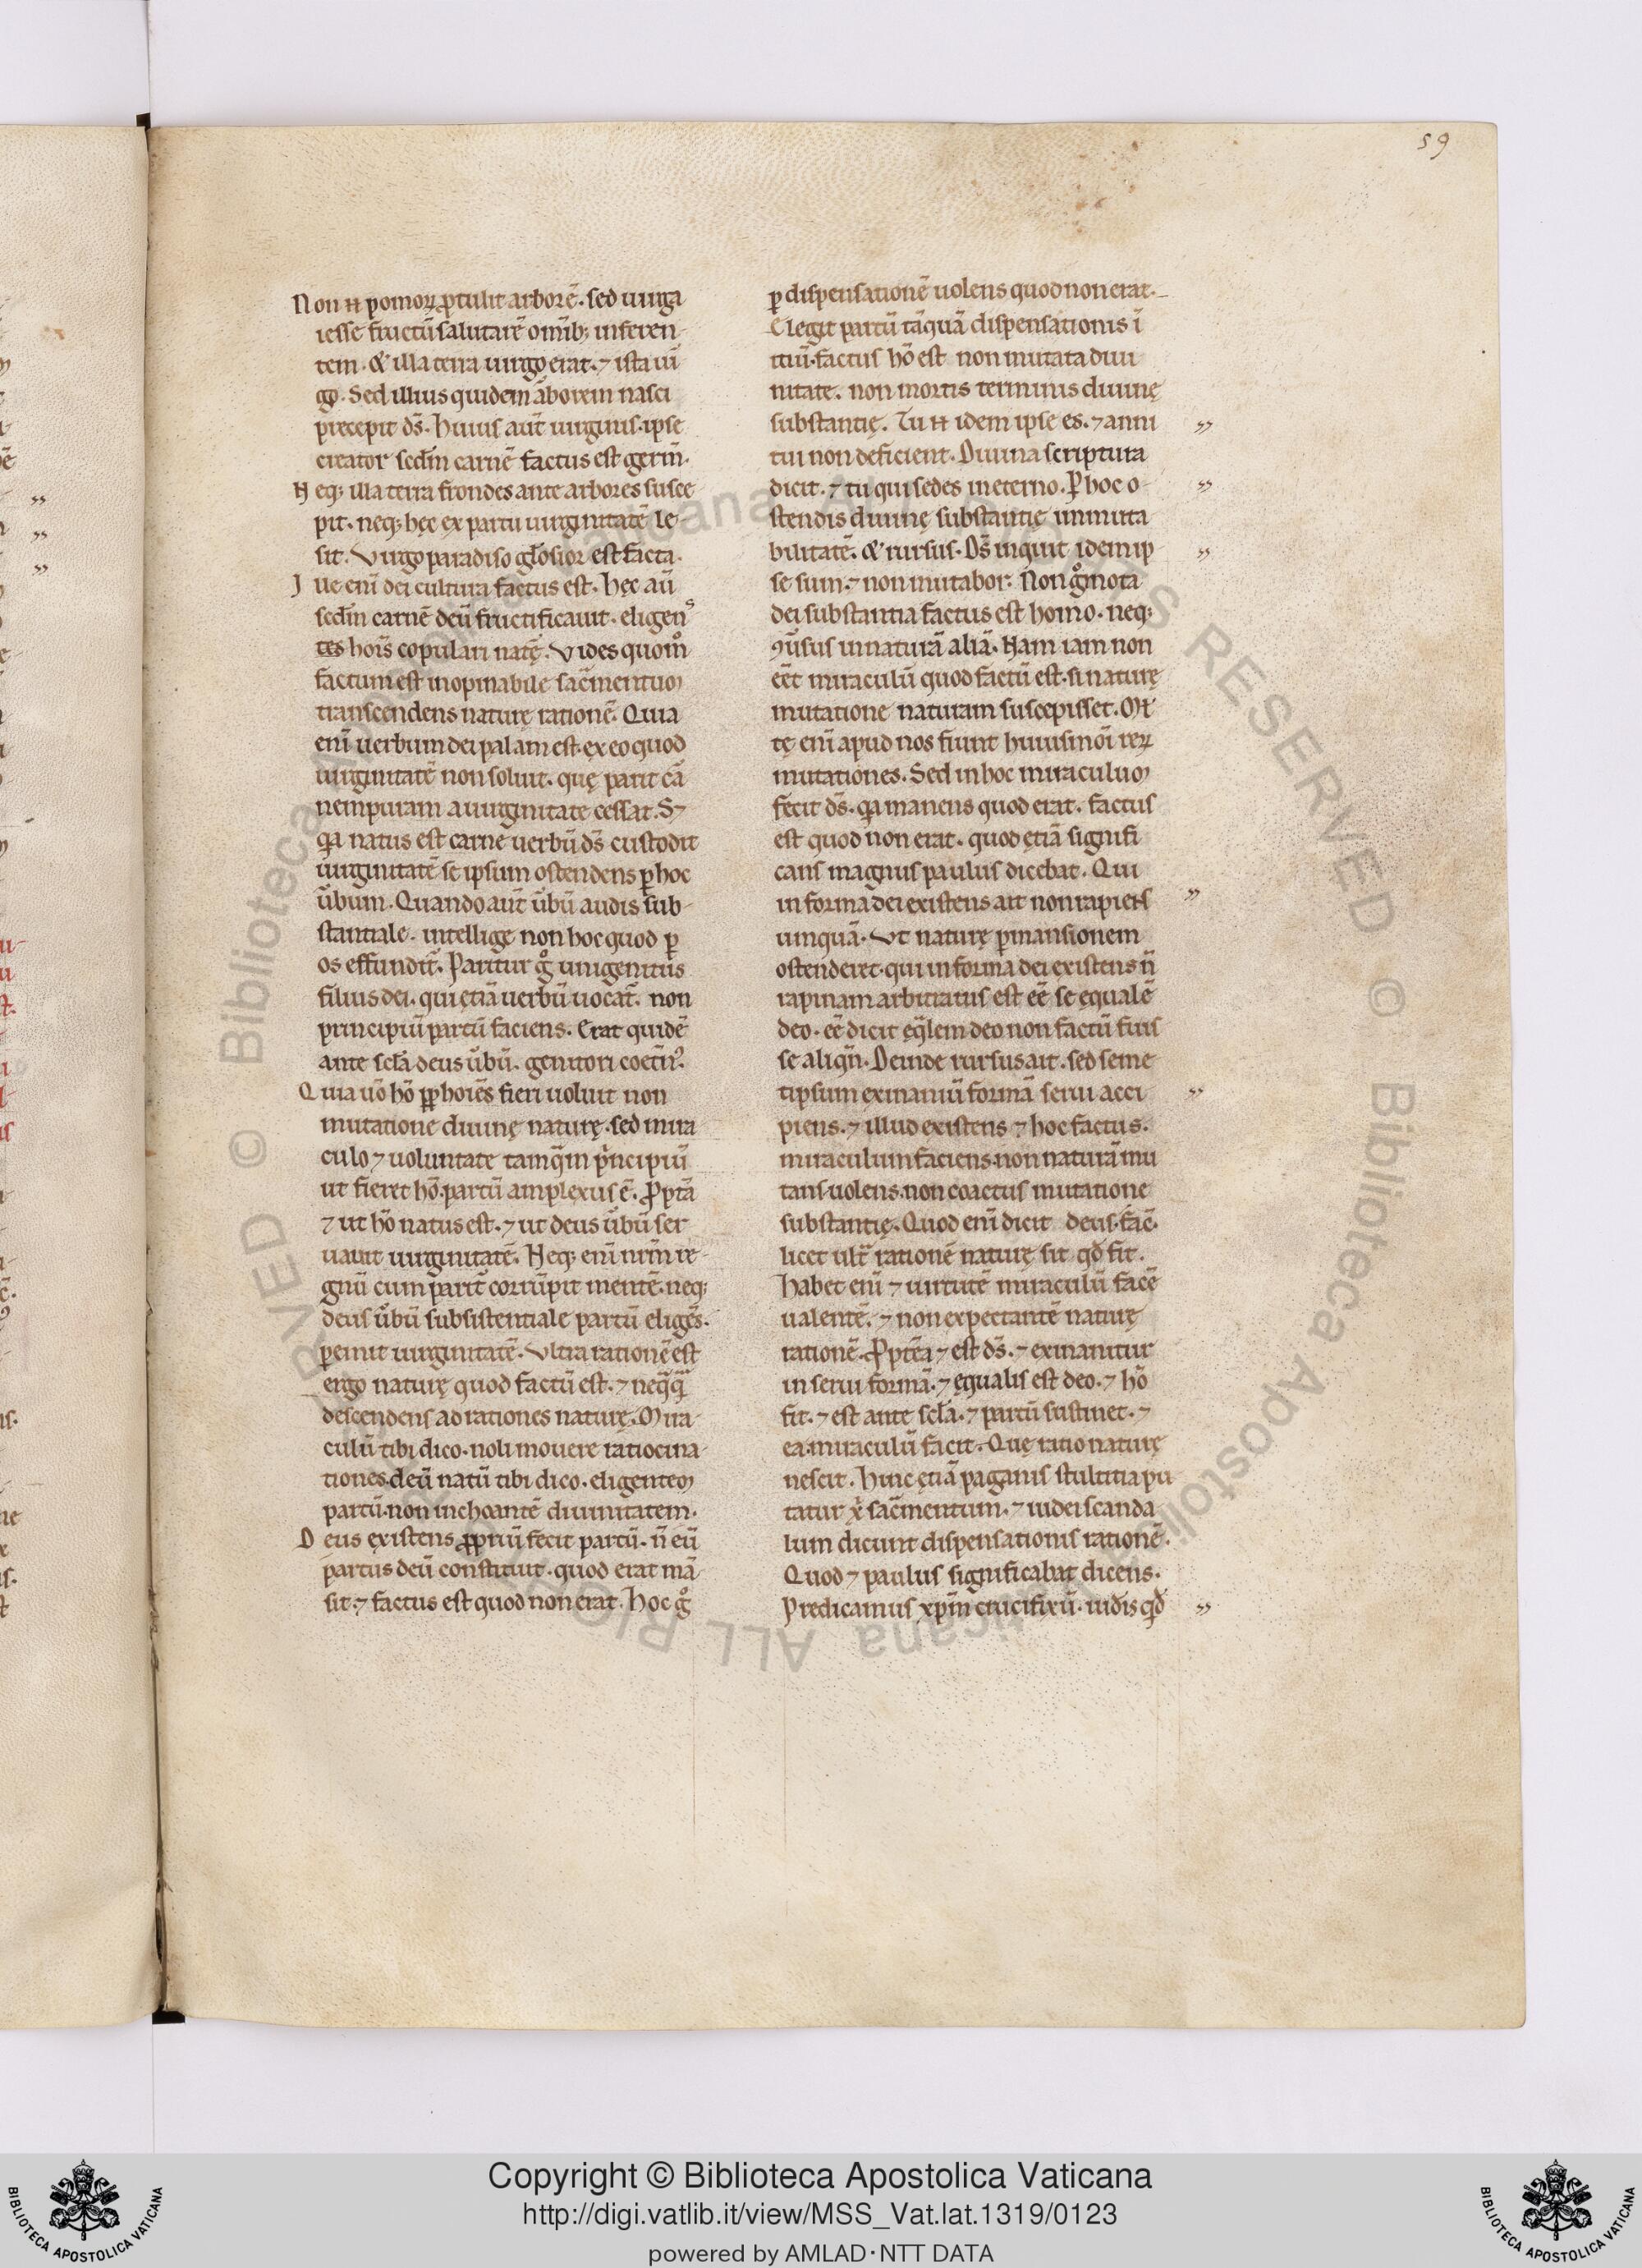 59
Non .n. pomoꝝ ꝓtulit arborē. sed uirga
iesse fructū salutarē omīb; inferen-
tem. & illa terra uirgo erat. ⁊ ista uī
go. Sed illius quidem āborem nasci
precepit ds̄. huius aūt uirginis. ipse
creator scd̄m carnē factus est germ̄.
Neq; illa terra frondes ante arbores susce
pit. neq; hęc ex partu uirginitatē le-
sit. Virgo paradiso gl̄osior est facta.
Ille eni dei cultura factus est. hęc aū
scd̄m carnē deū fructificauit. eligen
tes hoīs copulari natę. Vides quom̊
factum est inopinabile sac̄mentum
transcendens naturę rationē. Quia
enī uerbum dei palam est. ex eo quod
uirginitatē non soluit. quę parit cā
nem puram a uirginitate cessat. S⁊
qa natus est carne uerbū ds̄ custodit
uirginitatē se ipsum ostendens ꝑ hoc
ūbum. Quando aūt ūbū audis sub-
stantiale. intellige non hoc quod ꝑ
os effundit̄. Paritur g̊ unigenitus
filius dei. qui etiā uerbū uocat̄. non
principiū partū faciens. Erat quidē
ante scl̄a deus ūbū. genitori coet̄n⁹.
Quia uō hō ꝓp hoīes fieri uoluit non
mutatione diuinę naturę. sed mira
culo ⁊ uoluntate tamq̄m pⁱncipiū
ut fieret hō. partū amplexus ē. ꝓptā
⁊ ut hō natus est. ⁊ ut deus ūbū ser
uauit uirginitatē. Neq; enī nr̄m re-
gnū cum parit̄ corrūpit mentē. neq;
deus ūbū subsistentiale partū eligēs.
ꝑemit uirginitatē. Vltra rationē est
ergo naturę quod factū est. ⁊ neq̄q̄
descendens ad rationes naturę. Mira-
culū tibi dico. noli mouere ratiocina-
tiones. deū natū tibi dico. eligentem
partū. non inchoantē diuinitatem.
Deus existens ꝓpriū fecit partū. n̄ eū
partus deū constituit. quod erat mā-
sit. ⁊ factus est quod non erat. Hoc g̊
ꝑ dispensationē uolens quod non erat.
Elegit partū tāquā dispensationis ī
itiū. factus hō est non mutata diui
nitate. non mortis terminis diuinę
substantię. Tu .n. idem ipse es. ⁊ anni
tui non deficient. Diuina scriptura
dicit. ⁊ tu qui sedes in eterno. ꝑ hoc o-
stendis diuinę substantię immuta
bilitatē. & rursus. Ds̄ inquit idem ip
se sum. ⁊ non mutabor. Non g̊ mota
dei substantia factus est homo. neq;
ꝯūsus in naturā aliā. Nam iam non
eēt miraculū quod factū est. si naturę
mutatione naturam suscepisset. Ml̄
tę enī apud nos fiunt huiusmōi reꝝ
mutationes. Sed in hoc miraculum
fecit ds̄. qa manens quod erat. factus
est quod non erat. quod etiā signifi
cans magnus paulus dicebat. Qui
in forma dei existens ait non rapiens
umquā. Vt naturę ꝑmansionem
ostenderet. qui in forma dei existens n̄
rapinam arbitratus est eē se equalē
deo. eē dicit eq̄lem deo non factū fuis
se aliqn̄. Deinde rursus ait. sed seme
tipsum exinaniū formā serui acci
piens. ⁊ illud existens ⁊ hoc factus.
miraculum faciens. non naturā mu
tans. uolens. non coactus mutatione
substantię. Quod enī dicit deus. fac̄.
licet ult̄ rationē naturę sit qd̄ fit.
Habet enī ⁊ uirtutē miraculū facē
ualentē. ⁊ non expectantē naturę
rationē. ꝓptēa ⁊ est ds̄. ⁊ exinanitur
in serui formā. ⁊ ęqualis est deo. ⁊ hō
fit. ⁊ est ante scl̄a. ⁊ partū sustinet. ⁊
ea. miraculū facit. Quę ratio naturę
nescit. Hinc etiā paganis stultitia pu
tatur xⁱ sac̄mentum. ⁊ iudei scanda
lum dicunt dispensationis rationē.
Quod ⁊ paulus significabat dicens.
Predicamus xp̄m crucifixū. iud̄is qd̄
Copyright © Biblioteca Apostolica Vaticana
http://digi.vatlib.it/view/MSS_Vat.lat.1319/0123
powered by AMLAD·NTT DATA
BIBLIOTECA APOSTOLICA VATICANA
BIBLIOTECA APOSTOLICA VATICANA